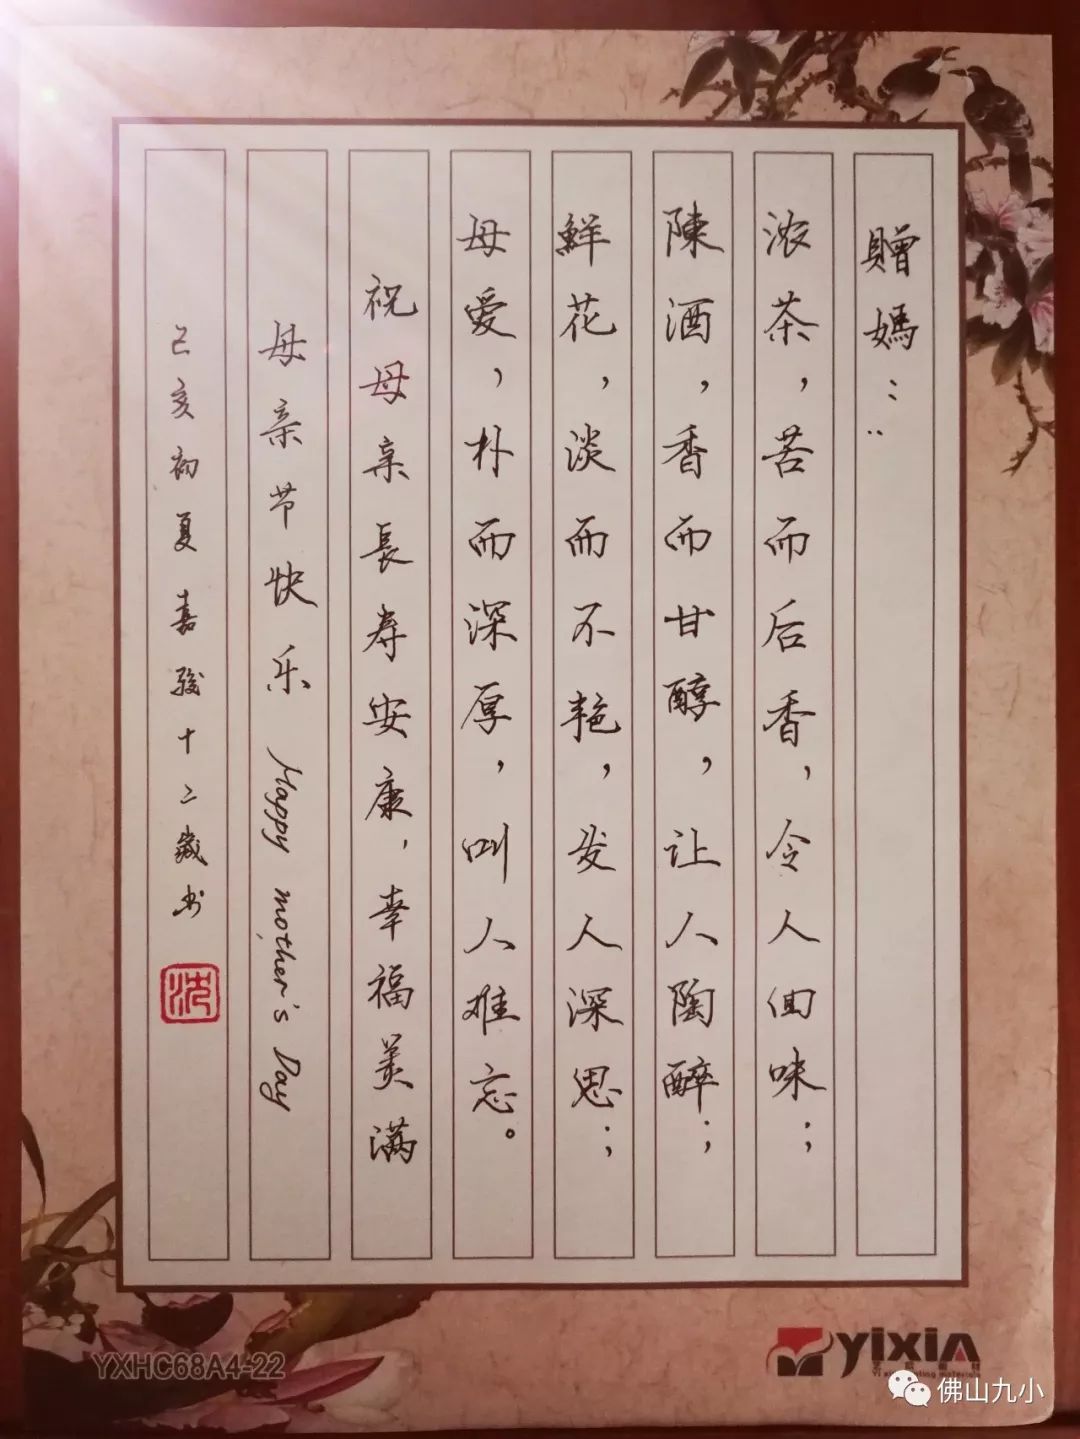 贈媽：‥
浓茶，苦而后香，令人回味；
陳酒，香而甘醇，让人陶醉；
鮮花，淡而不艳，发人深思；
母爱，朴而深厚，叫人难忘。
祝母亲長寿安康，幸福美满
母亲节快乐 Happy mother's Day
己亥初夏嘉骏十二歲书
沈
YXHC68A4-22
yixin
佛山九小